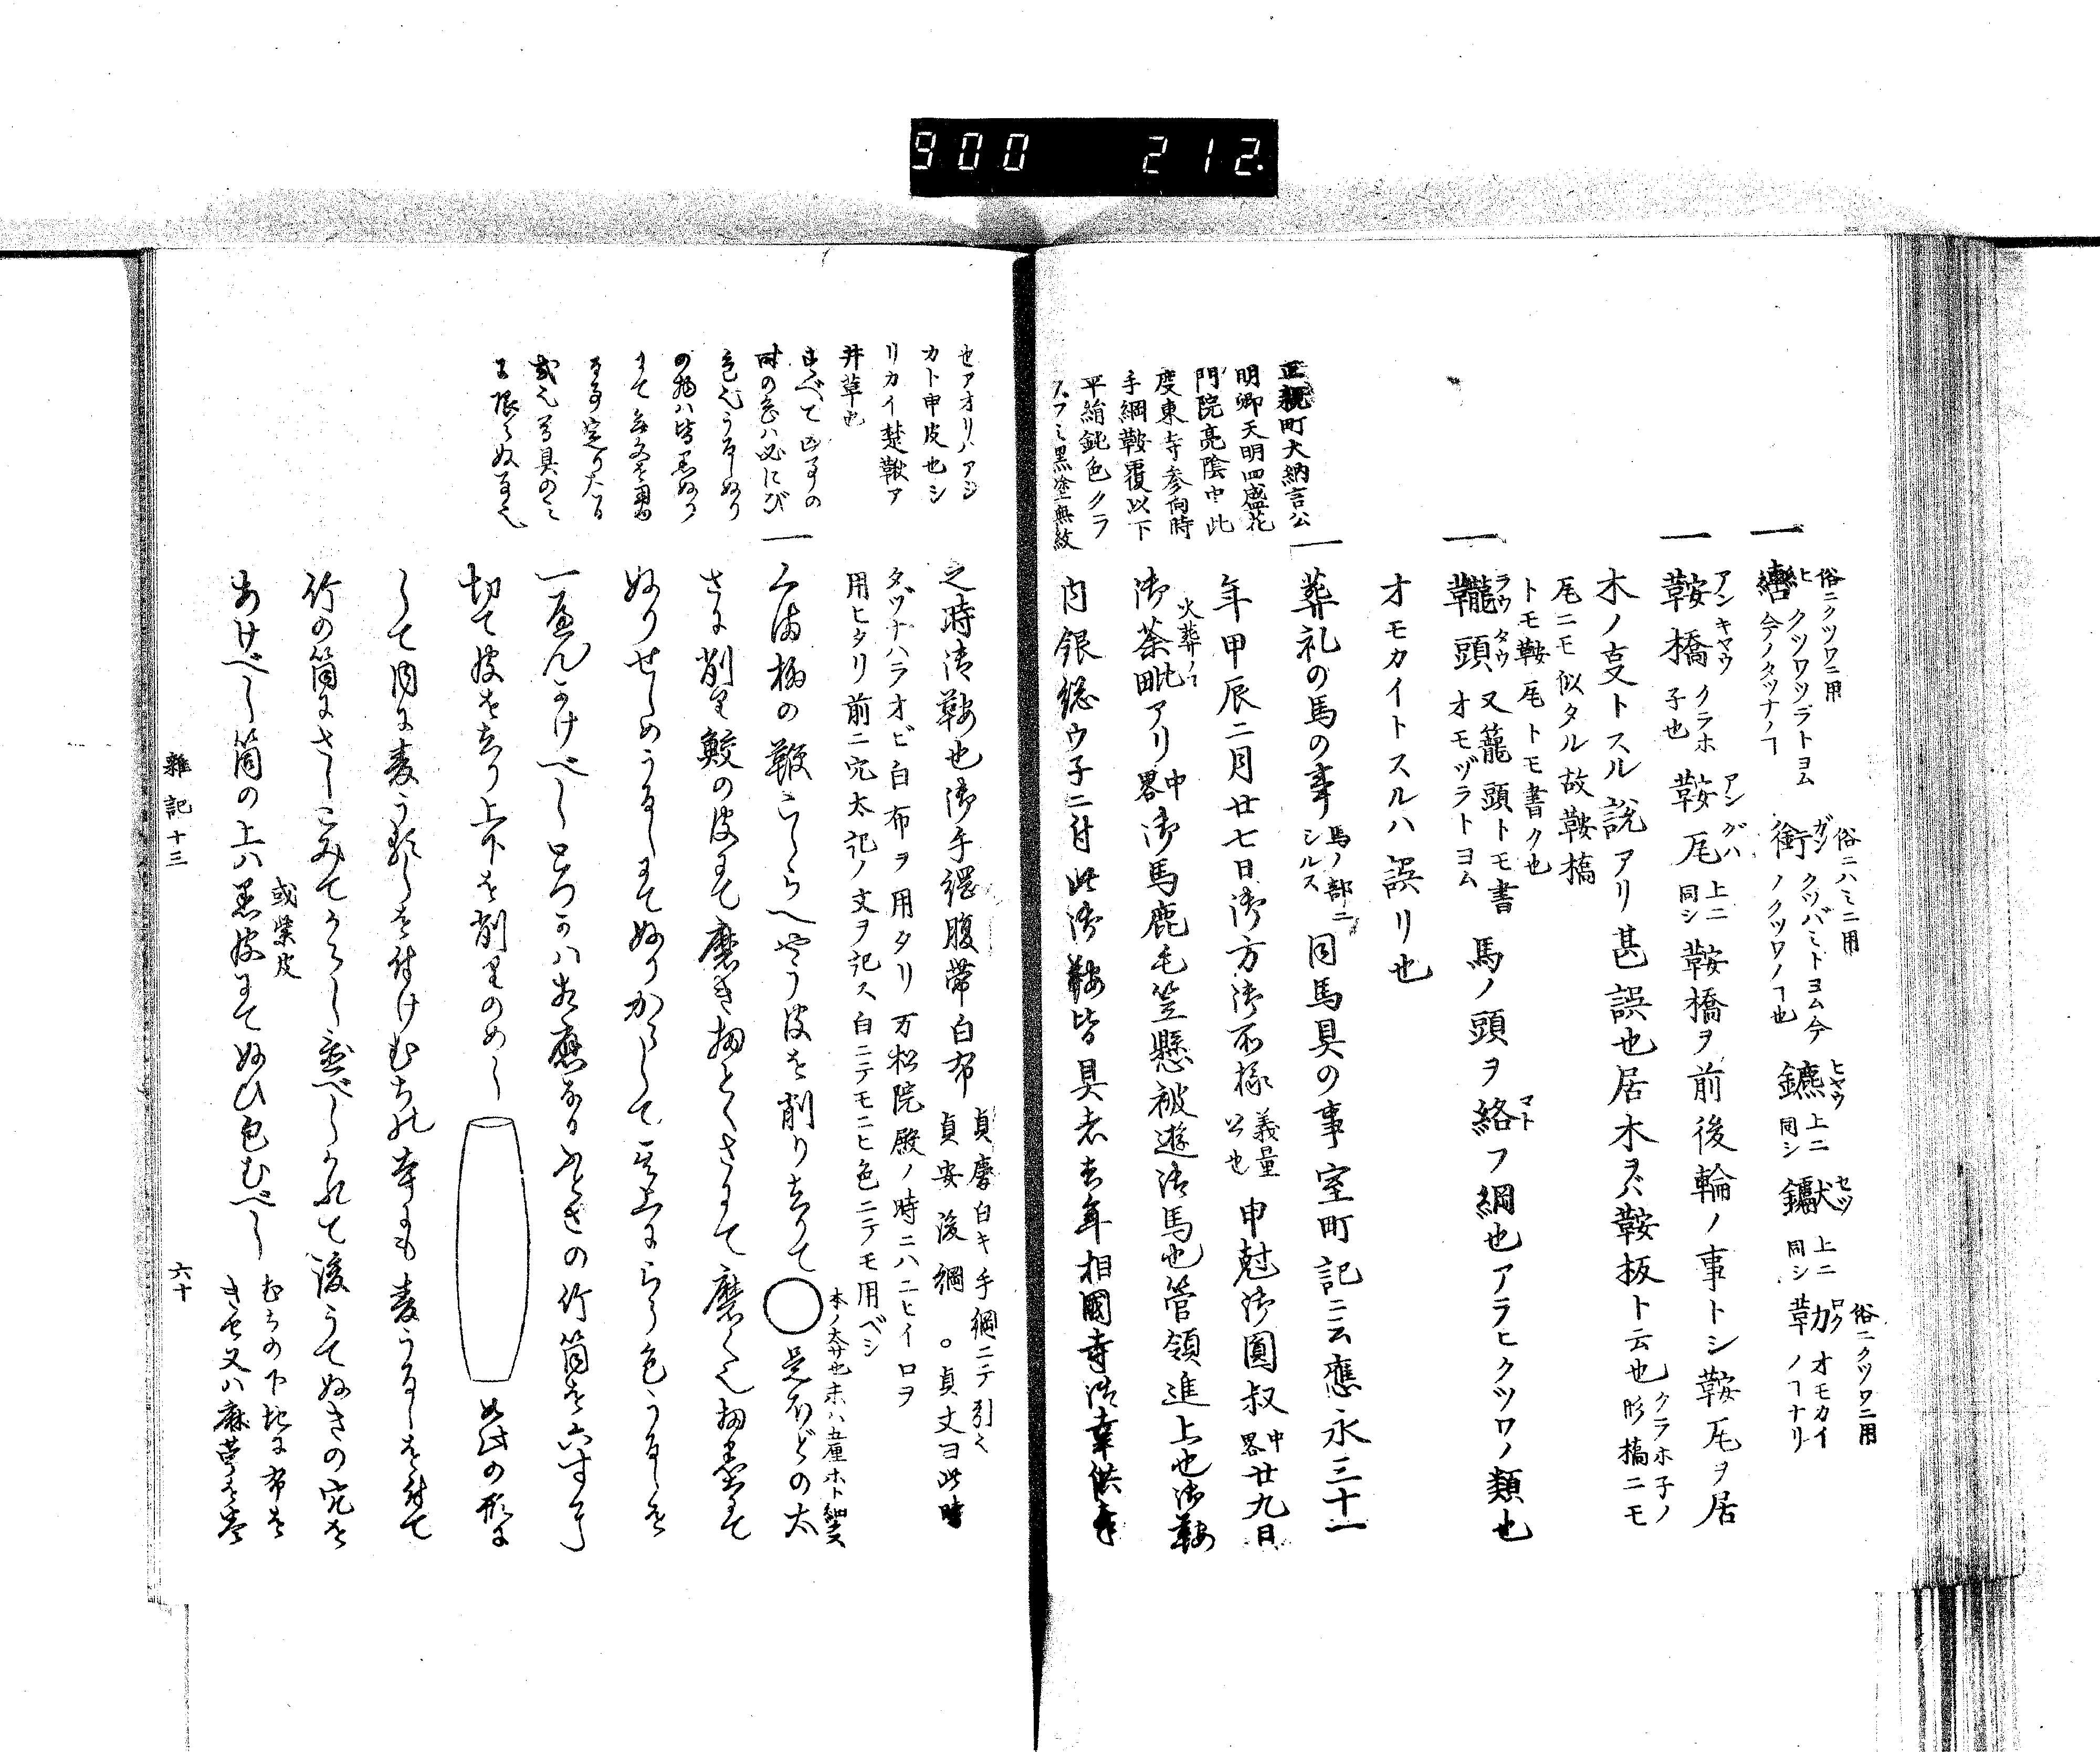 900 212.
俗ニクツワニ用
一轡 ヒ クツワツラトヨム 今ノタツナノヿ
俗ニハミニ用
銜 ガン クツバミトヨム今ノクツワノヿ也
鑣 ヒヤウ 上ニ同シ
上ニ同シ
俗ニクツワニ用
勒 ロク オモカイノヿナリ
一鞍橋 アンキヤウ クラホ子也 鞍瓦 アングハ 上ニ同シ 鞍橋ヲ前後輪ノ事トシ鞍瓦ヲ居
木ノ支トスル説アリ甚誤也居木ヲバ鞍板ト云也 クラホ子ノ形橋ニモ
尾ニモ似タル故鞍橋
トモ鞍瓦トモ書ク也
一鞚頭 ラウタウ 又籠頭トモ書 オモヅラトヨム 馬ノ頭ヲ絡 マト フ綱也アラヒクツワノ類也
オモカイトスルハ誤リ也
一葬礼の馬の事 馬ノ部ニシルス 同馬具の事室町記ニ云應永三十一
年甲辰二月廿七日御方御所様 義量公也 申尅御圓寂 中畧 廿九日
御荼毗 火葬ノヿ アリ 中畧 御馬鹿毛笠懸被遊御馬也管領進上也御鞍
内銀総ウ子ニ付此御鞍皆具者去年相國寺御幸供奉
正親町大納言公
明卿天明四盛花
門院亮陰中此
度東寺参向時
手綱鞍覆以下
平絹鈍色クラ
スフミ黒塗無紋
之時御鞍也御手縄腹帯白布 貞麿白キ手綱ニテ引く 貞安後綱 ○貞丈ヨ此時
タヅナハラオビ白布ヲ用タリ万松院殿ノ時ニハニヒイロヲ
用ヒタリ前ニ穴太記ノ文ヲ記ス白ニテモニヒ色ニテモ用ベシ
セアオリハアシ
カト申皮也シ
リカイ楚鞦ア
井草也
すべて凶事の
時の色ハ必にび
色也うるしぬり
の物ハ皆黒ぬり
にて無文を用
る事定りたる
或之馬具のミ
に限らぬ事也
一くま柳の鞭こしらへやう皮を削り去りて○是ほどの太 本ノ太サ也末ハ五厘ホト細ク
さに削り鮫の皮にて磨き扨とくさにて磨くへし扨墨にて
ぬりせしめうるしにてぬりからして其上にろう色うるしを
一へんかけべしとつかハ相應なるふとさの竹筒を六寸に
切て皮を去り上下を削りのめし 如此の形に
して内に麦うるしを付けむちの本にも麦うるしを付て
竹の筒にさしこみてからし置べしかれて後うてぬきの穴を
あけべし筒の上ハ黒皮 或紫皮 にてぬひ包むべし むちの下地に布をきせ又ハ麻苧を巻
雑記十三
六十